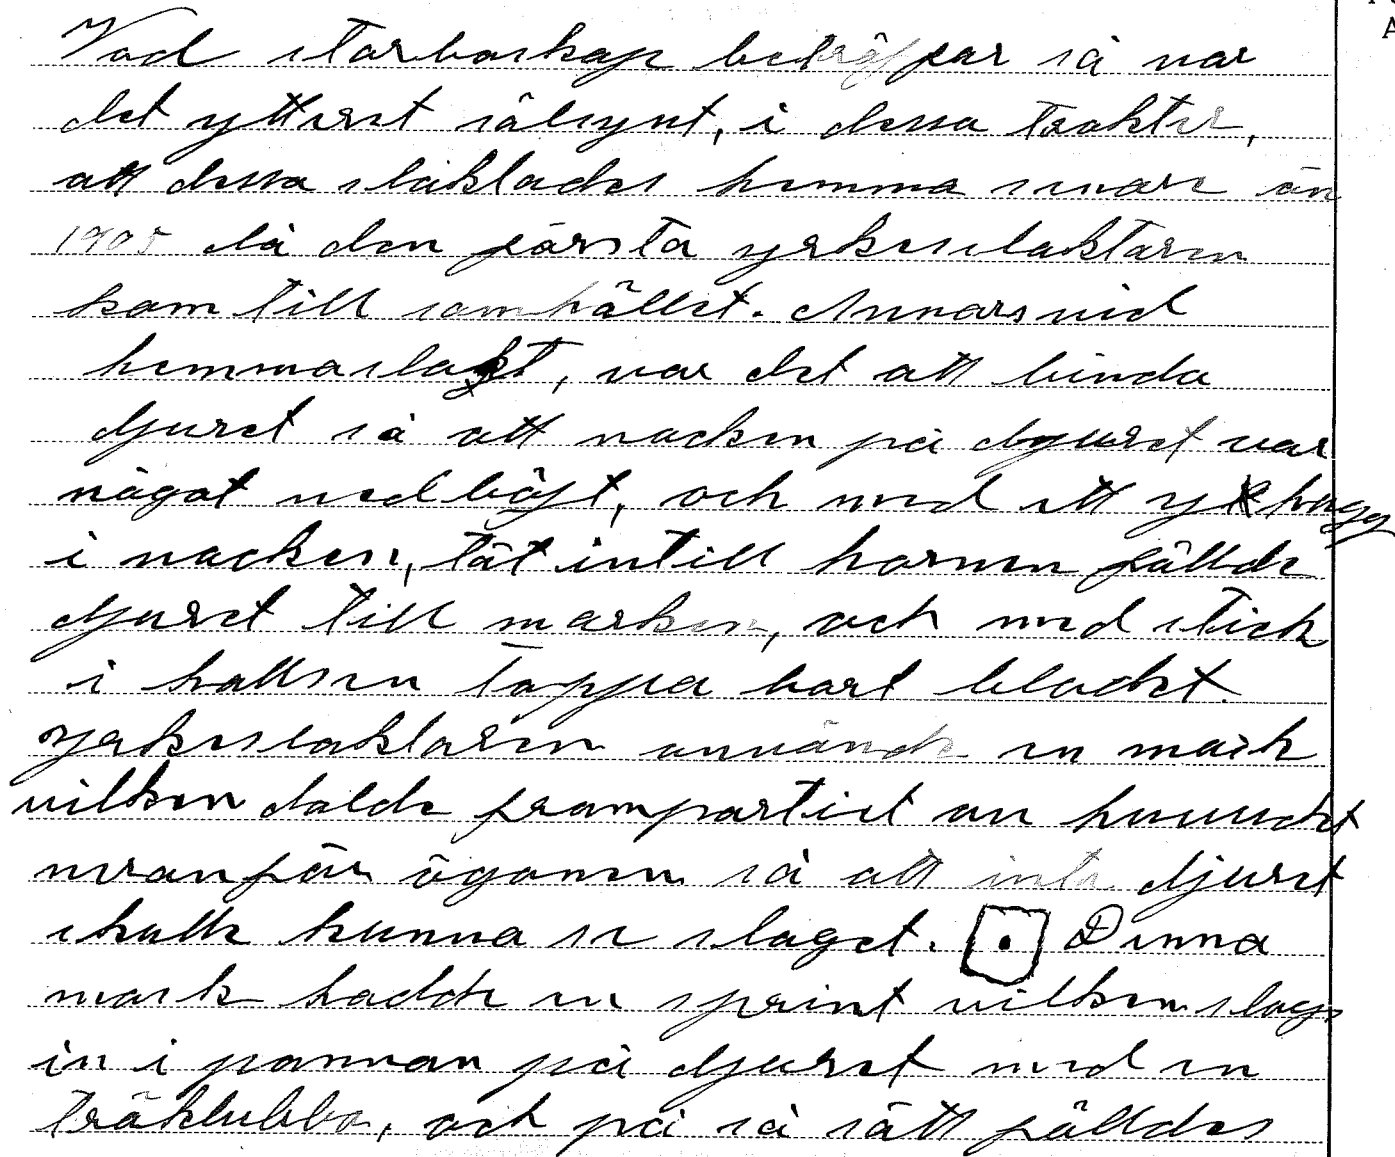 Vad storboskap beträffar så var
det ytterst sälsynt, i dessa trakter,
att dessa slaktades hemma senare än
1905 då den första yrkesslaktaren
kom till samhället. Annars vid
hemmaslakt, var det att binda
djuret så att nacken på djuret var
något nedböjt, och med ett yxhugg
i nacken, tät intill hornen fällde
djuret till marken, och med stick
i hallsen tappa bort blodet.
yrkesslaktaren använde en mask
vilken dolde frampartiet av huvudet
ovanför ögonen så att inte djuret
skulle kunna se slaget. Denna
mask hadde en sprint vilken slogs
in i pannan på djuret med en
träklubba, och på så sätt fälldes